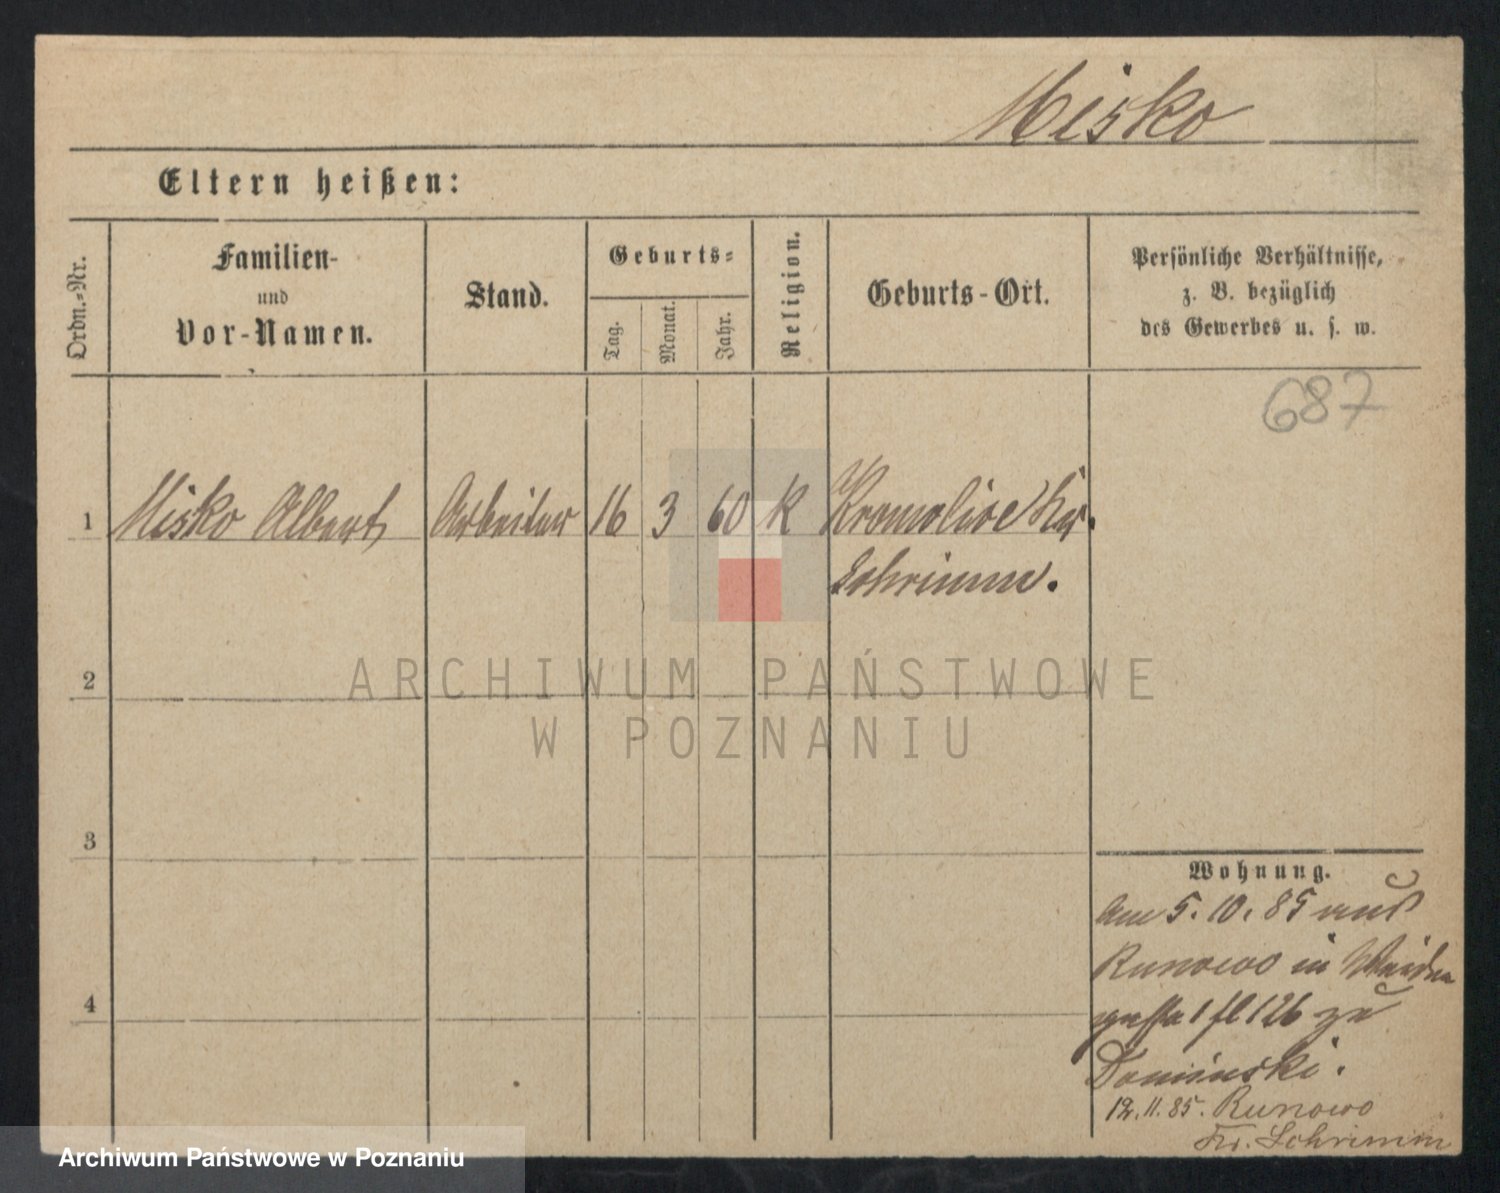 Misko
Eltern heißen:
Ordn.-Nr.
Familien-
und
Vor-Namen.
Stand.
Geburts-
Tag.
Monat.
Jahr.
Religion.
Geburts-Ort.
Persönliche Verhältnisse,
z. B. bezüglich
des Gewerbes u. s. w.
687
1 Misko Albert Arbeiter 16 3 60 K Kromolice Kr.
Schrimm.
2
ARCHIWUM PAŃSTWOWE
W POZNANIU
3
Wohnung.
Am 5. 10. 85 aus
Runowo in Weiden
gasse 1 fl 126 zu
Dominski.
4
12. 11. 85. Runowo
Kr. Schrimm
Archiwum Państwowe w Poznaniu